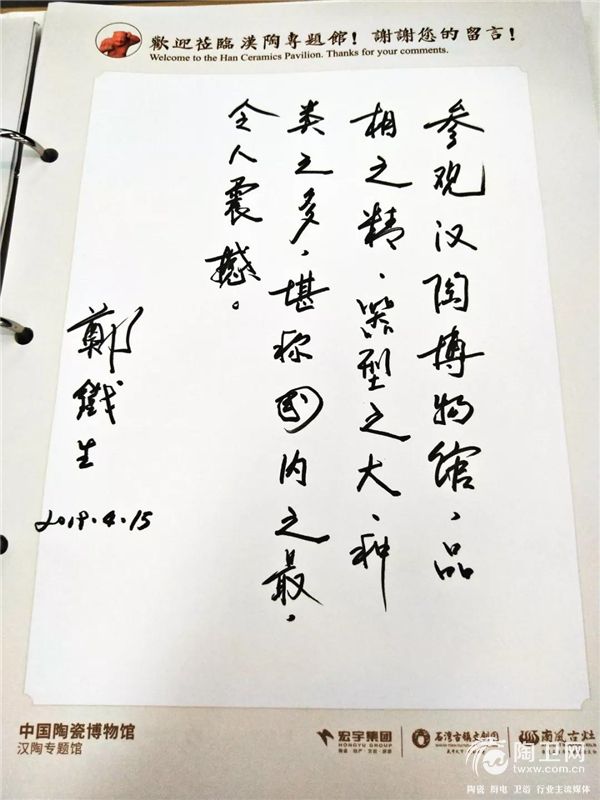 歡迎莅臨漢陶專題館！謝謝您的留言！
Welcome to the Han Ceramics Pavilion. Thanks for your comments.
参观汉陶博物馆，品
相之精、器型之大、种
类之多，堪称国内之最，
令人震撼。
鄭鐵生
2019.4.15
中国陶瓷博物馆
汉陶专题馆
宏宇集团
HONGYU GROUP
石湾古镇文创园
南风古灶
陶卫网
www.twxw.com.cn
陶瓷 厨电 卫浴 行业主流媒体